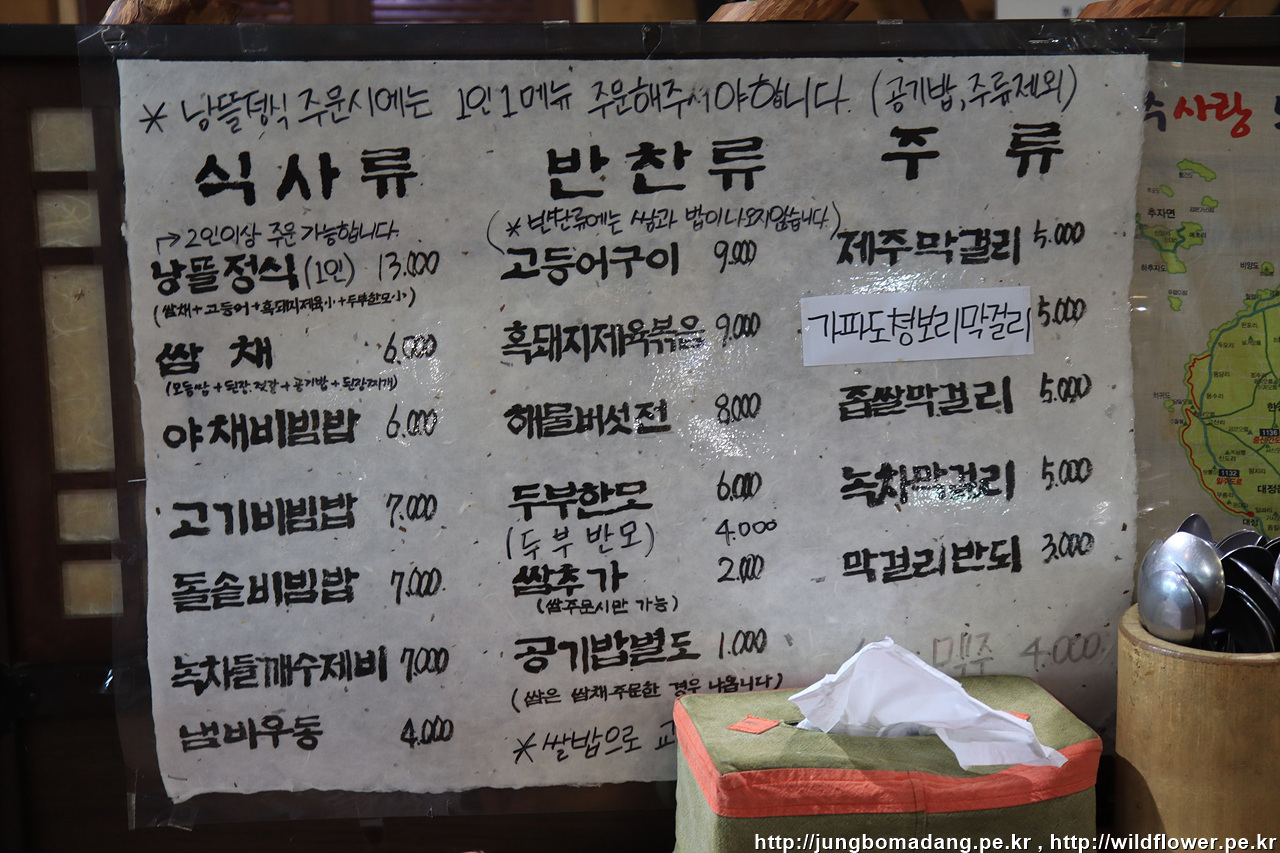 * 낭뜰정식 주문시에는 1인 1메뉴 주문해주셔야합니다. (공기밥, 주류제외)
식사류
→ 2인이상 주문 가능합니다.
낭뜰정식 (1인) 13,000
(쌈채+고등어+흑돼지제육小+두부한모小)
쌈채 6,000
(모듬쌈+된장.젓갈+공기밥+된장찌개)
야채비빔밥 6,000
고기비빔밥 7,000
돌솥비빔밥 7,000
녹차들깨수제비 7,000
냄비우동 4,000
반찬류
(*반찬류에는 쌈과 밥이 나오지않습니다.)
고등어구이 9,000
흑돼지제육볶음 9,000
해물버섯전 8,000
두부한모 6,000
(두부반모) 4,000
쌈추가 2,000
(쌈주문시만 가능)
공기밥별도 1,000
(쌈은 쌈채주문한 경우 나옵니다)
* 쌀밥으로
주류
제주막걸리 5,000
가파도청보리막걸리 5,000
좁쌀막걸리 5,000
녹차막걸리 5,000
막걸리반되 3,000
맥주 4,000
사랑
추자면
하추자도
비양도
1132
1136
대정
http://jungbomadang.pe.kr , http://wildflower.pe.kr